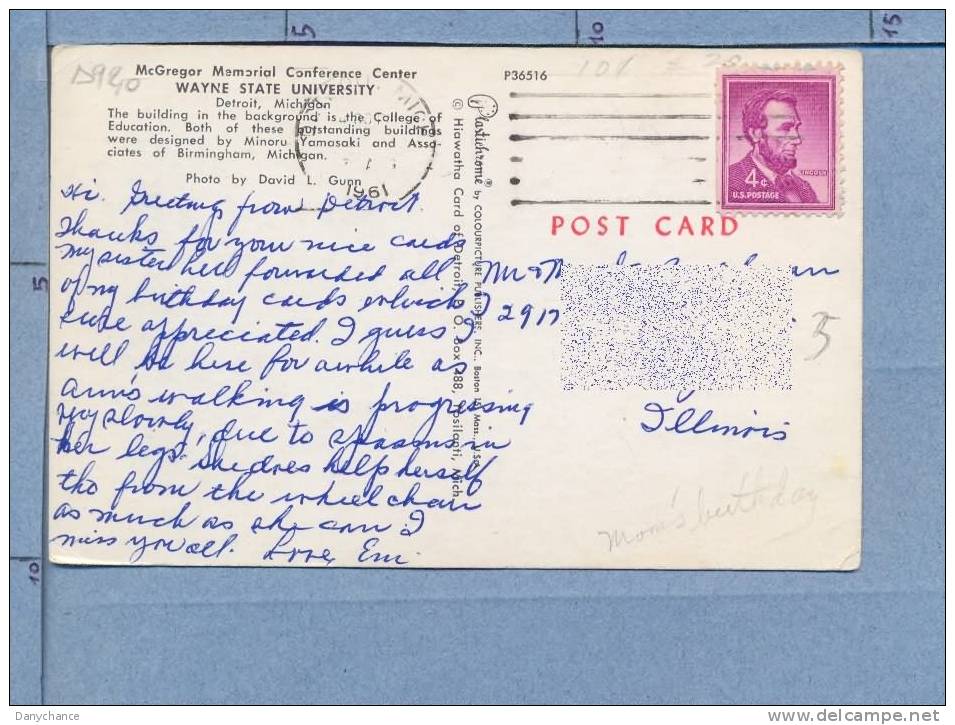 5
10
15
D940
McGregor Memorial Conference Center
WAYNE STATE UNIVERSITY
Detroit, Michigan
The building in the background is the College of
Education. Both of these outstanding buildings
were designed by Minoru Yamasaki and Asso-
ciates of Birmingham, Michigan.
Photo by David L. Gunn
MICH
1961
P36516
101
4¢
LINCOLN
U.S. POSTAGE
POST CARD
Plastichrome ® by COLOURPICTURE PUBLISHERS, INC., Boston 15, Mass., U.S.A.
© Hiawatha Card of Detroit, P. O. Box 288, Ypsilanti, Mich.
Hi. Greetings from Detroit.
Thanks for your nice cards
my sister here forwarded all
of my birthday cards which I
sure appreciated. I guess I
will be here for awhile as
Ann's walking is progressing
very slowly, due to spasms in
her legs. She does help herself
tho from the wheel chair
as much as she can. I
miss you all. Love, Em
Mr & M
2917
Illinois
5
Mom's birthday
5
10
Danychance
www.delcampe.net